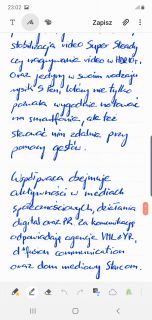 23:02
Zapisz
stabilizacja video Super Steady
czy nagrywanie video w HDR10+.
Oraz jedyny w swoim rodzaju
rysik S Pen, który nie tylko
pozwala wygodnie notować
na smartfonie, ale też
sterować nim zdalnie, przy
pomocy gestów.
Współpraca obejmuje
aktywności w mediach
społecznościowych, działania
digital oraz PR. Za komunikację
odpowiadają agencje VMLY&R,
d*fusion communication
oraz dom mediowy Starcom.